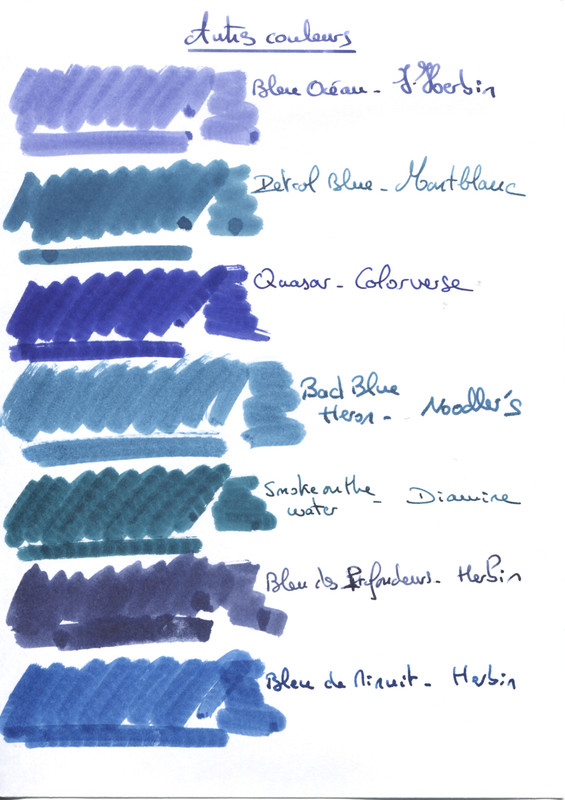 Autres couleurs
Bleu Océan - J. Herbin
Petrol Blue - Montblanc
Quasar - Colorverse
Bad Blue
Heron - Noodler's
Smoke on the
water - Diamine
Bleu des Profondeurs - Herbin
Bleu de Minuit - Herbin